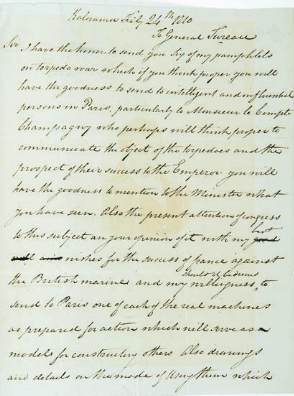 Kalorama Feby 24th 1810
To General Tureau
Sir I have the honor to send you six of my pamphlets
on torpedo war which if you think proper you will
have the goodness to send to intelligent and influential
persons in Paris, particularly to Monsieur le Compte
Champagny who perhaps will think proper to
communicate the object of the torpedoes and the
prospect of their success to the Emperor you will
have the goodness to mention to the Minister what
you have seen. Also the present attention of congress
to this subject and your opinion of it with my best
wishes for the success of france against
the British marine and my willingness to
send to Paris one of each of the real machines
as prepared for action which will serve as
models for constructing others Also drawings
and details on the mode of using them which